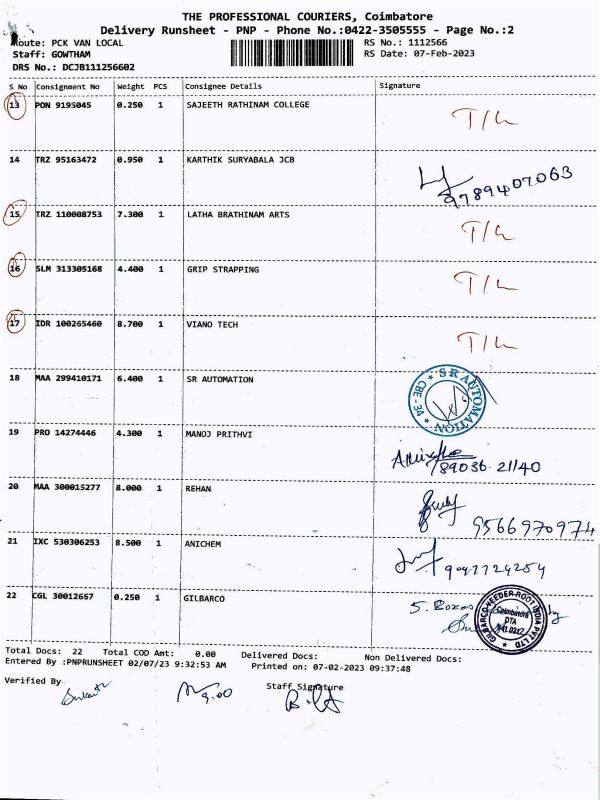 THE PROFESSIONAL COURIERS, Coimbatore
Delivery Runsheet - PNP - Phone No.:0422-3505555 - Page No.:2
Route: PCK VAN LOCAL RS No.: 1112566
Staff: GOWTHAM RS Date: 07-Feb-2023
DRS No.: DCJB111256602
S No Consignment No Weight PCS Consignee Details Signature
13 PON 9195045 0.250 1 SAJEETH RATHINAM COLLEGE T/L
14 TRZ 95163472 0.950 1 KARTHIK SURYABALA JCB 9789407063
15 TRZ 110008753 7.300 1 LATHA BRATHINAM ARTS T/L
16 SLM 313305168 4.400 1 GRIP STRAPPING T/L
17 IDR 100265460 8.700 1 VIANO TECH T/L
18 MAA 299410171 6.400 1 SR AUTOMATION SR AUTOMATION CBE - 34
19 PRO 14274446 4.300 1 MANOJ PRITHVI 89036 21140
20 MAA 300015277 8.000 1 REHAN 9566970974
21 IXC 530306253 8.500 1 ANICHEM
22 CGL 30012667 0.250 1 GILBARCO GILBARCO VEEDER-ROOT INDIA PVT LTD Coimbatore DTA
Total Docs: 22 Total COD Amt: 0.00 Delivered Docs: Non Delivered Docs:
Entered By :PNPRUNSHEET 02/07/23 9:32:53 AM Printed on: 07-02-2023 09:37:48
Verified By Staff Signature
9.00